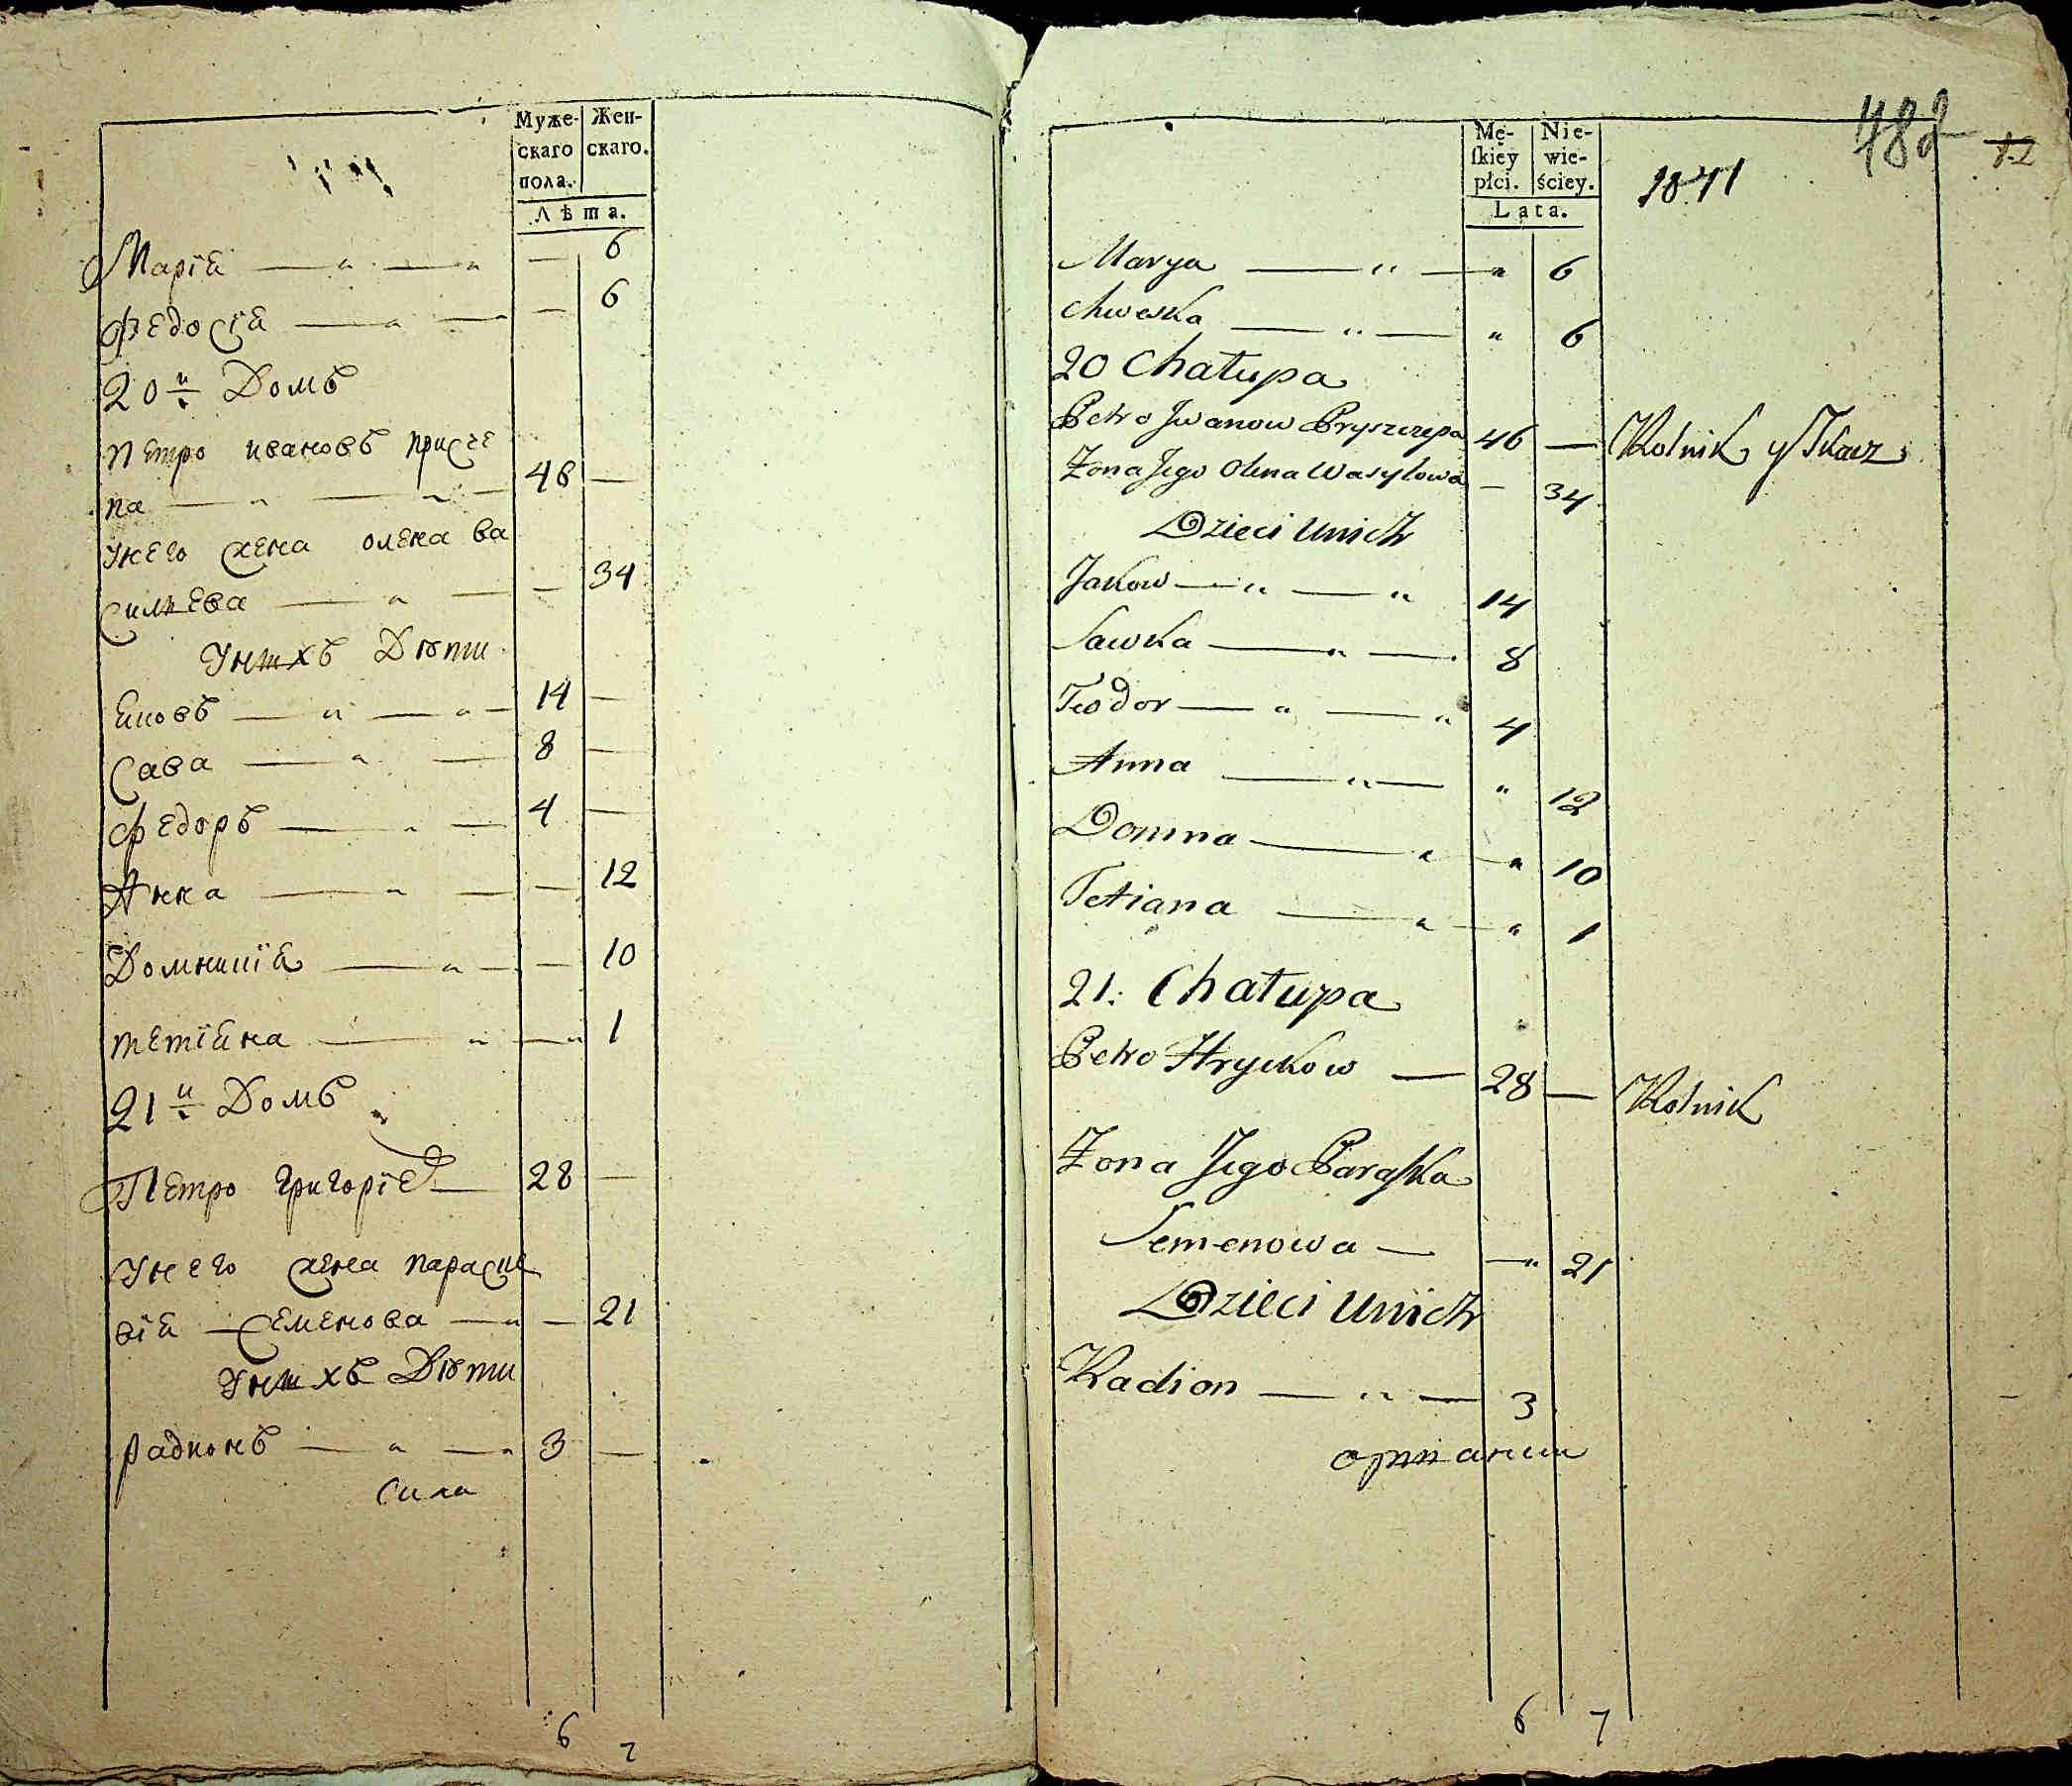 Муже-
скаго
пола.
Жен-
скаго.
Лѣта.
Марія — " — " — 6
Федосія — " — — 6
20й Домъ
Петро ивановъ присче
па — " — " — 46 —
Унего жена олена ва
сильева — " — — 34
Унихъ Дѣти
Яковъ — " — " — 14 —
Сава — " — 8 —
Федоръ — " — 4 —
Анна — " — — 12
Домникия — " — — 10
тетіяна — " — " 1
21й Домъ
Петро григоріе — 28 —
Унего жена параске
вія — Семенова — " — 21
Унихъ Дѣти
радионъ — " — " 3 —
Сила
6 7
Mę-
ſkiéy
płci.
Nie-
wie-
ściey.
Lata.
482
Marya — " — " 6
Chweska — " — " 6
20 Chałupa
Petro Jwanow Pryszczepa 46 — Rolnik y Tkacz
Żona Jego Olena Wasylowa — 34
Dzieci Unich
Jakow — " — " 14
Sawka — " — 8
Teodor — " — " 4
Anna — " — " 12
Domna — " — " 10
Tetiana — " — " 1
21. Chałupa
Petro Hryckow — 28 — Rolnik
Żona Jego Paraſka
Semenowa — — " 21
Dzieci Unich
Radion — " — 3
6 7